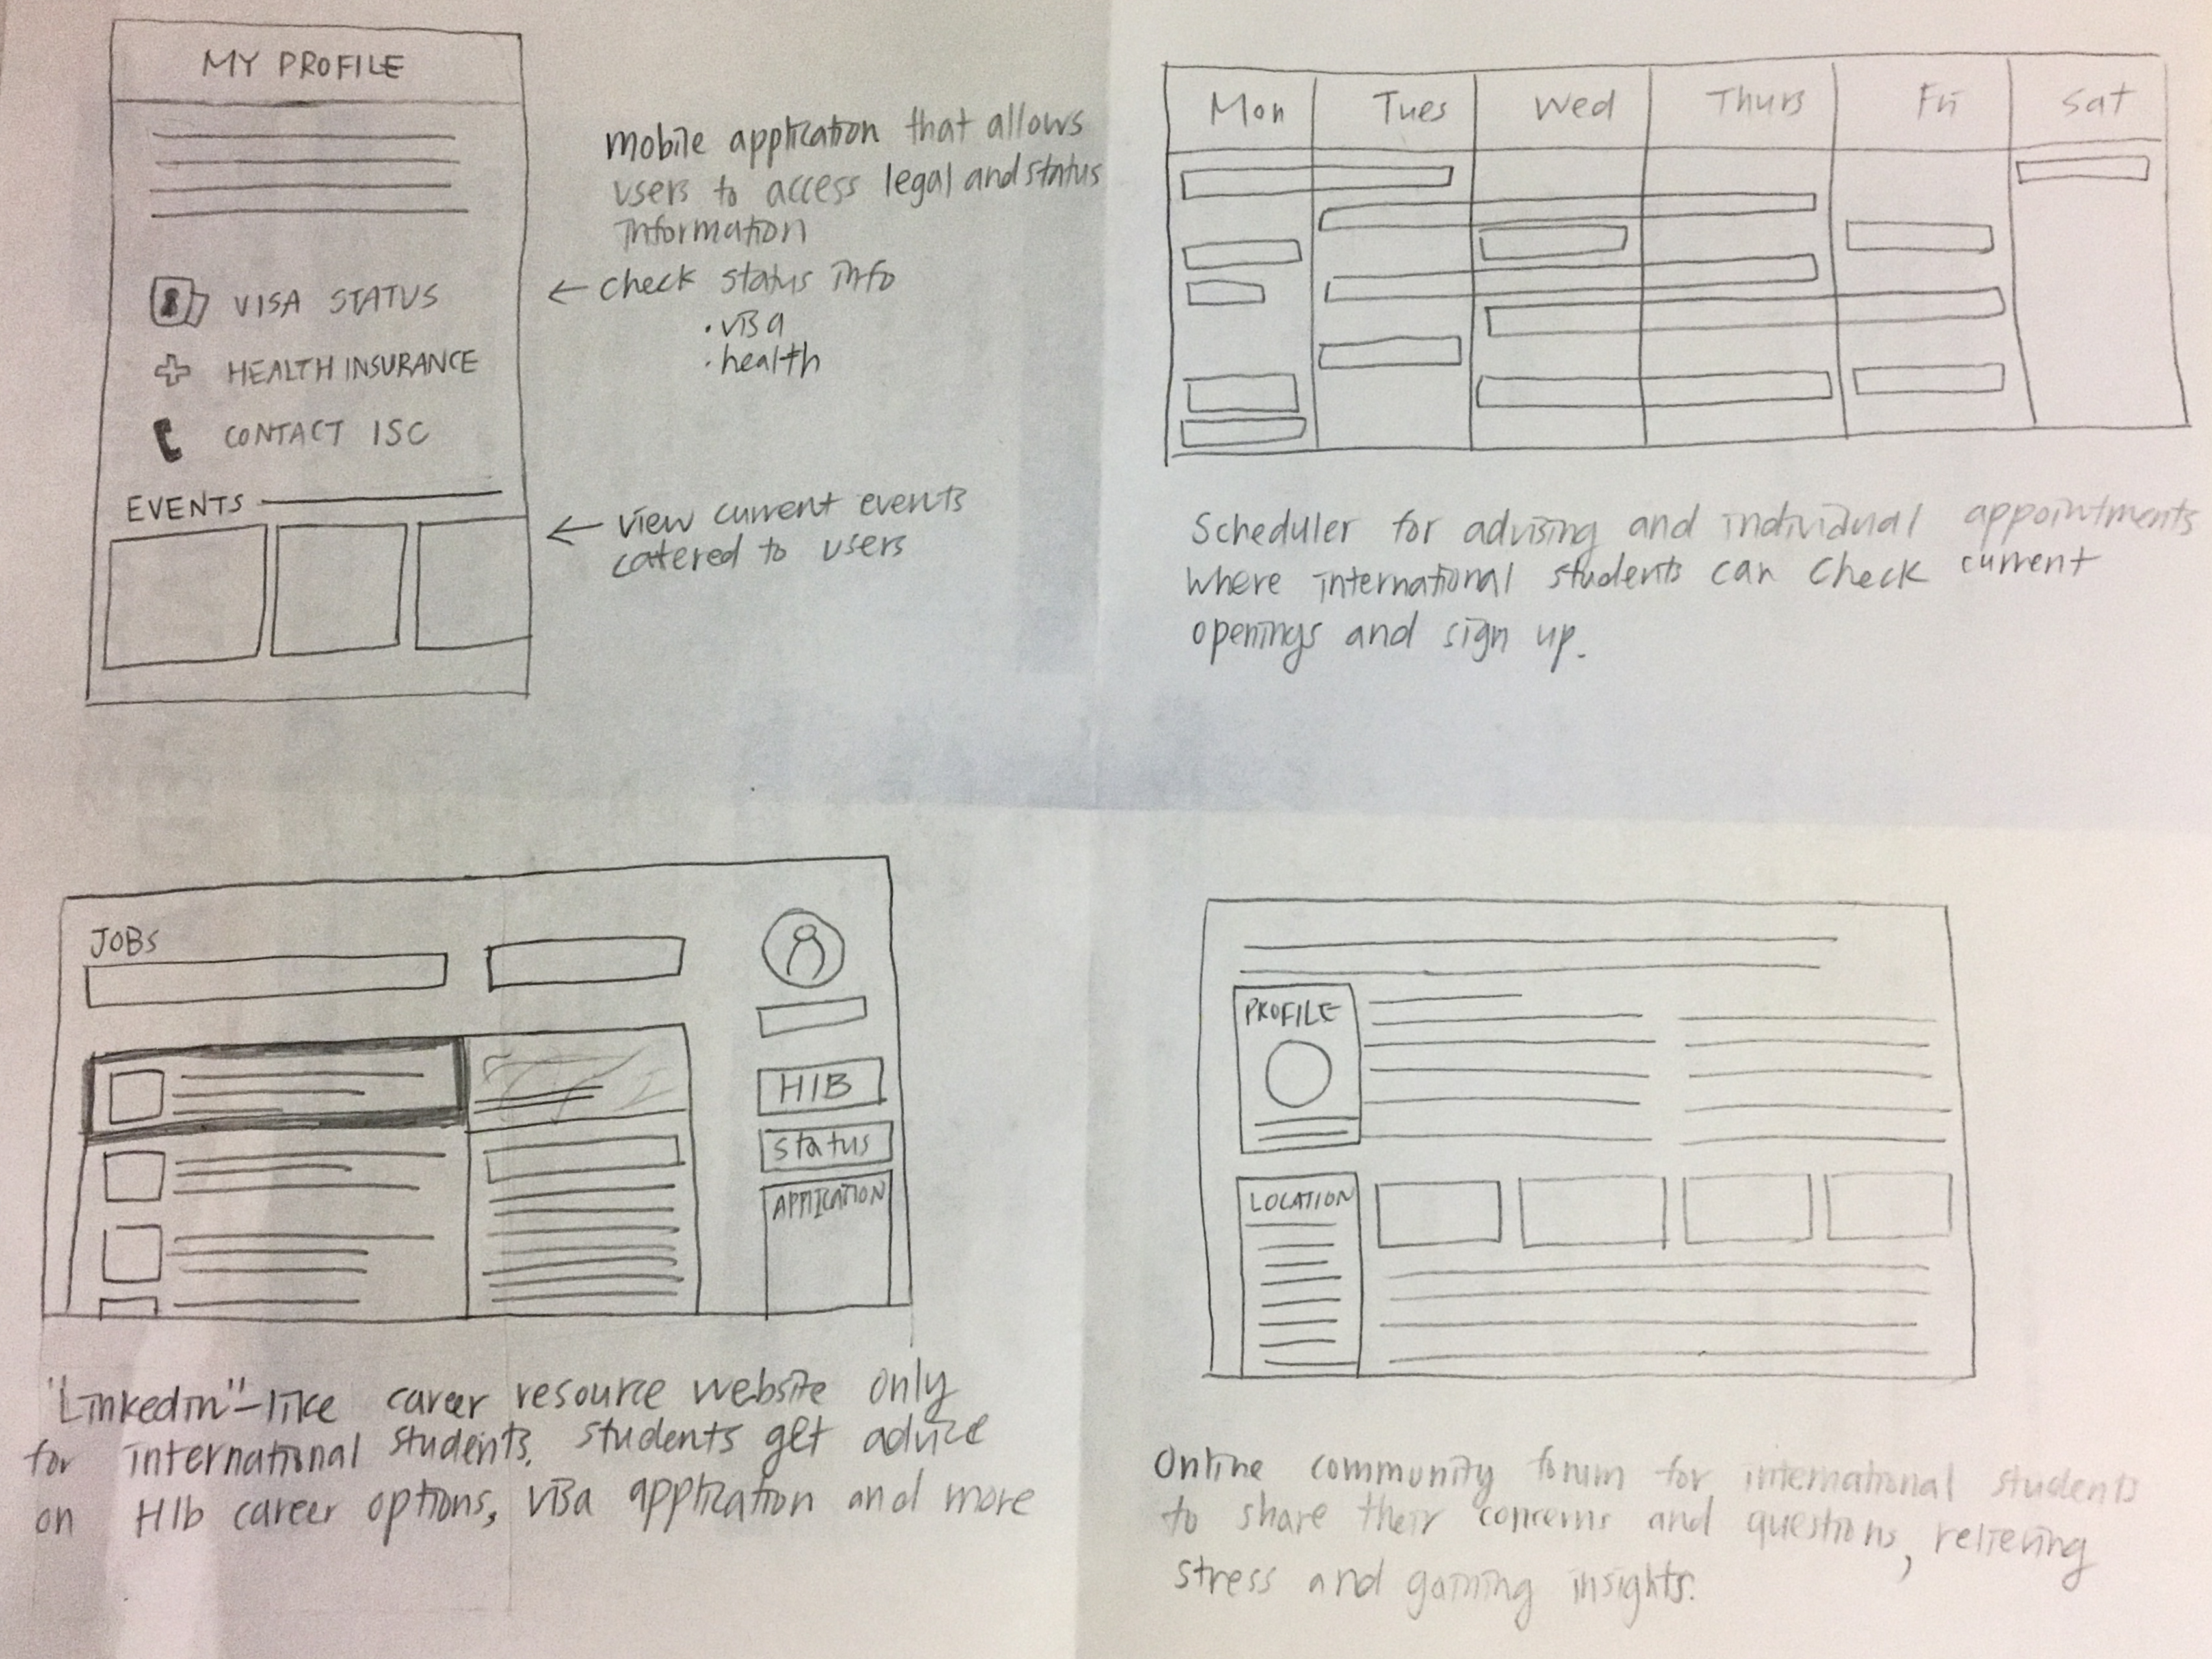 MY PROFILE
VISA STATUS
HEALTH INSURANCE
CONTACT ISC
EVENTS
mobile application that allows
users to access legal and status
information
← check status info
· visa
· health
← view current events
catered to users
Mon Tues Wed Thurs Fri Sat
Scheduler for advising and individual appointments
where international students can check current
openings and sign up.
JOBS
H1B
status
APPLICATION
"Linkedin"-like career resource website only
for international students. students get advice
on H1b career options, visa application and more
PROFILE
LOCATION
Online community forum for international students
to share their concerns and questions, relieving
stress and gaining insights.